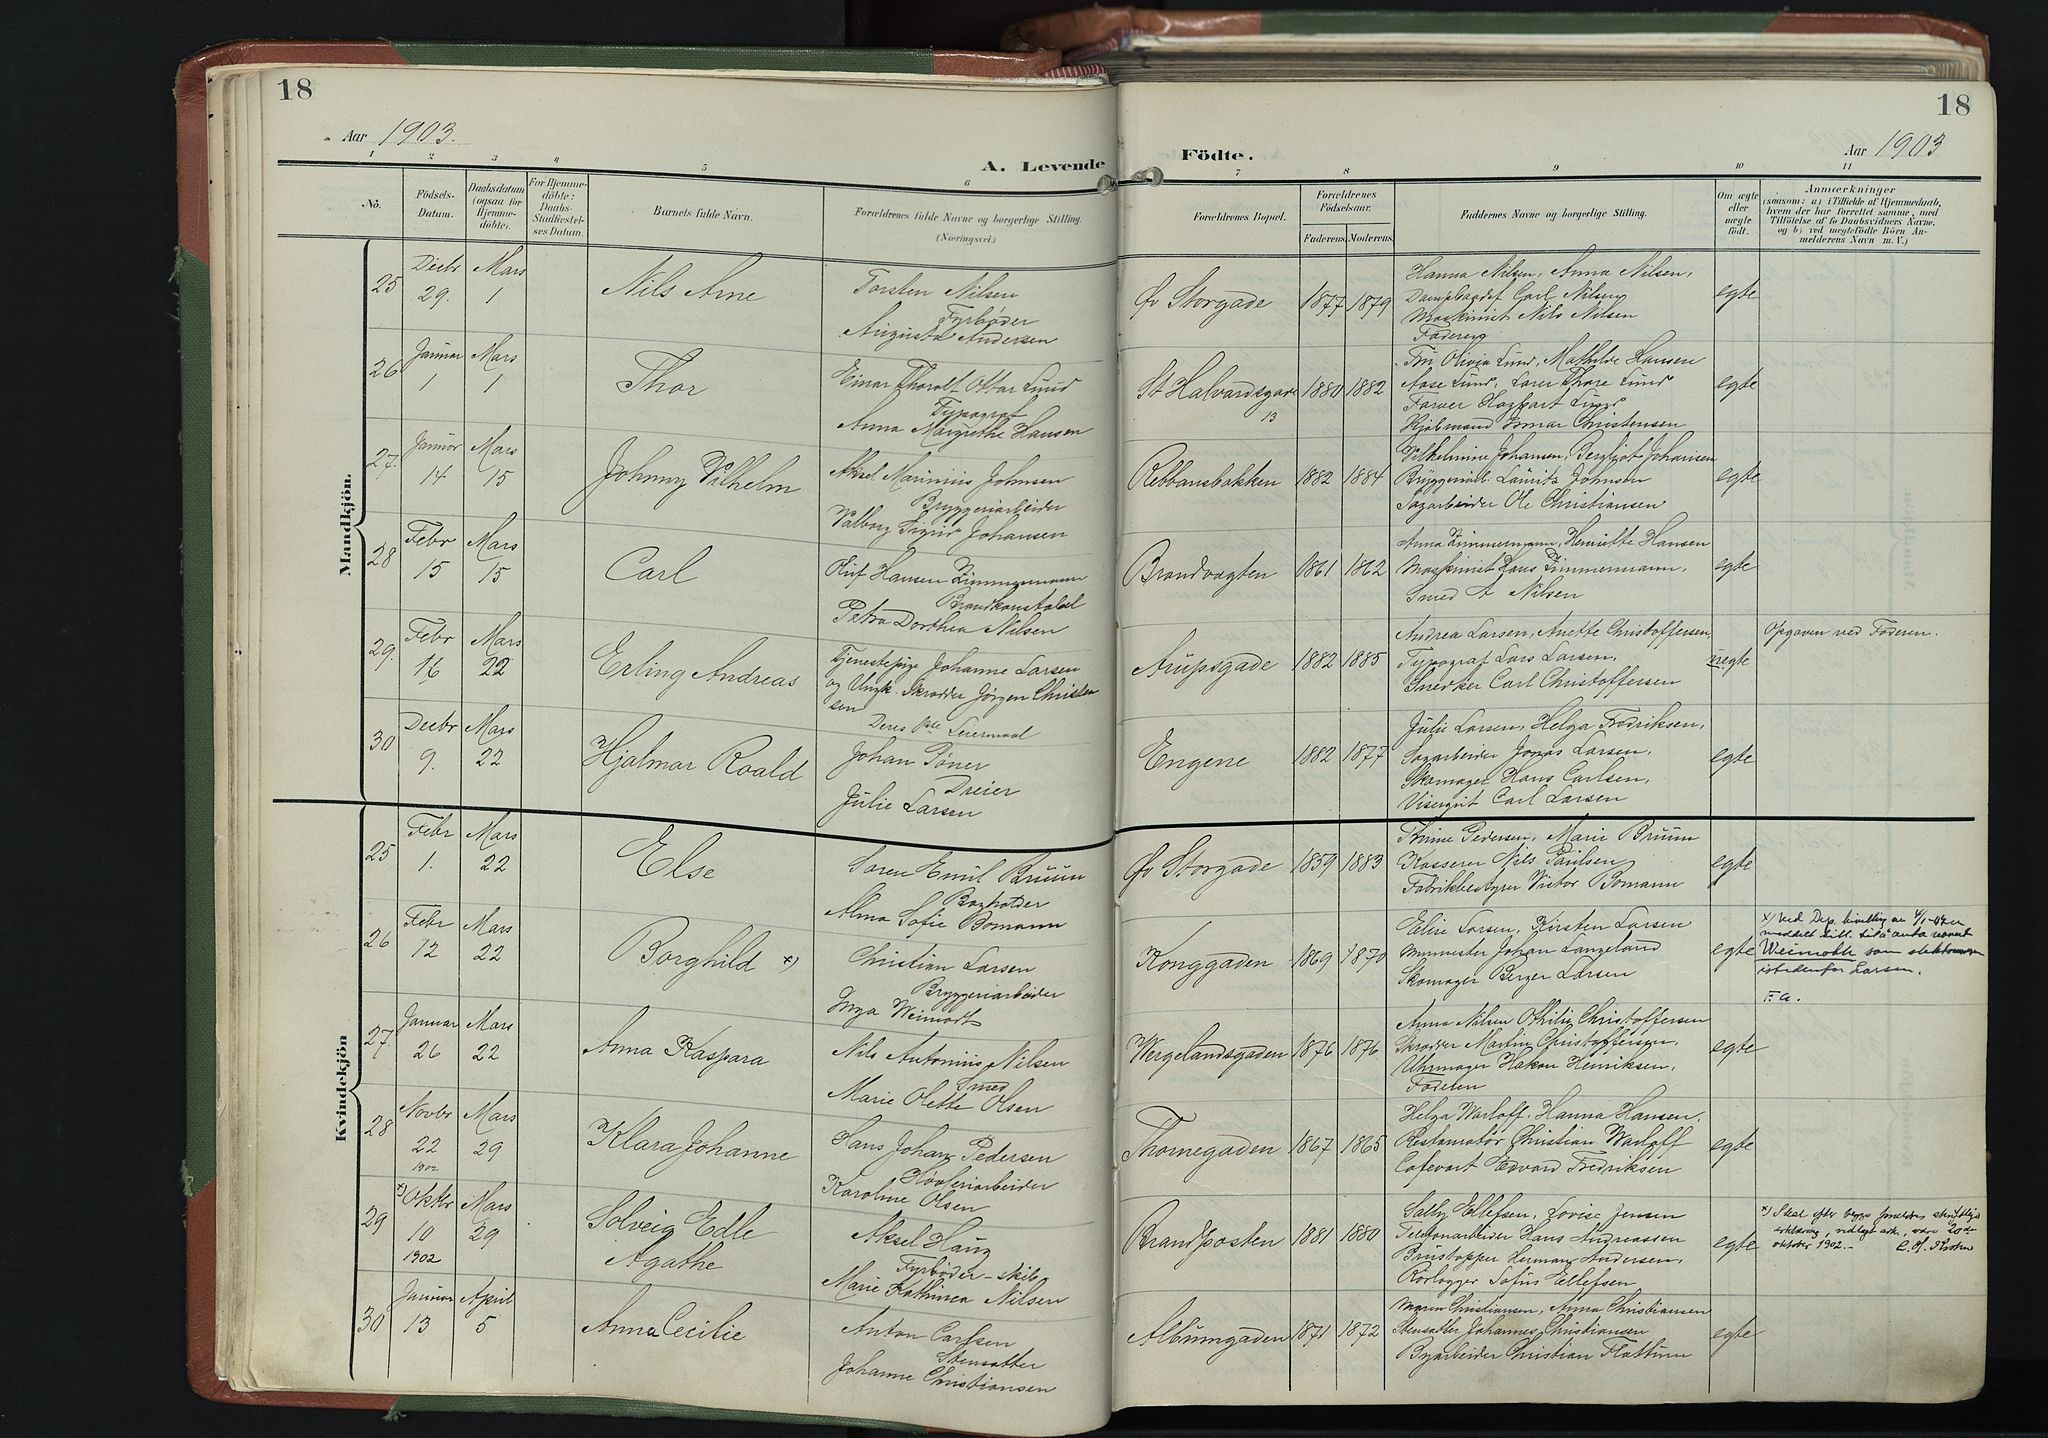 18
Aar 1903.
A. Levende
1 2 3 4 5 6
No. Födsels-Datum. Daabsdatum (ogsaa for Hjemmedöbte). For Hjemmedöbte: Daabs-Stadfæstelses Datum. Barnets fulde Navn. Forældrenes fulde Navne og borgerlige Stilling. (Næringsvei.)
Mandkjön.
25 Decbr 29. Mars 1 Nils Arne Torsten Nilsen
Fyrbøder
Augusta Andersen
26 Januar 1 Mars 1 Thor Einar Thoralf Ottar Lund
Typograf
Anna Margrethe Hansen
27. Januar 14 Mars 15 Johnny Vilhelm Aksel Marinius Johnsen
Bryggeriarbeider
Valborg Sigrid Johansen
28 Febr 15 Mars 15 Carl Oluf Hansen Zimmermann
Brandkonstabel
Petra Dorthea Nilsen
29. Febr 16 Mars 22 Erling Andreas Tjenestepige Johanne Larsen
og Ungk. Skrædder Jørgen Christen
sen
Deres Leiermaal
30 Decbr 9. Mars 22 Hjalmar Roald Johan
Dreier
Julie Larsen
Kvindekjön
25 Febr 1. Mars 22 Else Søren Emil Bruun
Boghalder
Alma Sofie Bomann
26 Febr 12 Mars 22 Borghild x) Christian Larsen
Bryggeriarbeider
Inga Weimodt
27. Januar 26 Mars 22 Anna Kaspara Nils Antonius Nilsen
Smed
Marie Olette Olsen
28 Novbr 22 1902 Mars 29 Klara Johanne Hans Johan Pedersen
Høvleriarbeider
Karoline Olsen
29 x) Oktbr 10 1902 Mars 29 Solveig Edle
Agathe Aksel Haug
Fyrbøder - skib
Marie Kathinca Nilsen
30 Januar 13 April 5 Anna Cecilie Anton Carlsen
Stensætter
Johanne Christiansen
18
Aar 1903
Födte.
7 8 9 10 11
Forældrenes Bopæl. Forældrenes Födselsaar. Faderens. Moderens. Faddernes Navne og borgerlige Stilling. Om ægte eller uægte födt. Anmærkninger
(saasom: a) i Tilfælde af Hjemmedaab,
hvem der har forrettet samme, med
Tilföielse af to Daabsvidners Navne.
og b) ved uægtefödte Börn Anmelderens Navn m. V.)
Øv Storgade 1877 1879 Hanna Nilsen, Anna Nilsen, egte
Carl Nilsen
Maskinist Nils Nilsen
Faderen
St Halvardsgade 13 1880 1882 Fru Olivia Lund, Mathilde Hansen egte
Aase Lund, Thore Lund
Farver Lund
Kjøbmand Christensen
Rebbansbakken 1882 1884 Vilhelmine Johansen, Bergljot Johansen egte
Johnsen
Sagarbeider Ole Christiansen
Brandvagten 1861 1862 Anna Zimmermann, Henriette Hansen egte
Maskinist Hans Zimmermann,
Smed A Nilsen
Arupsgade 1882 1885 Andrea Larsen, Anette Christoffersen, uegte Opgaven ved Faderen.
Typograf Lars Larsen,
Snedker Carl Christoffersen
Engene 1882 1877 Julie Larsen, Helga Fredriksen, egte
Sagarbeider Jonas Larsen,
Skomager Hans Carlsen,
Visergut Carl Larsen
Øv Storgade 1859 1883 Thrine Pedersen, Marie Bruun egte
Kasserer Nils Paulsen
Fabrikbestyrer Victor Bomann
Konggaden 1869 1870 Elise Larsen, Kirsten Larsen egte
Murmester Johan Langeland
Skomager Berger Larsen
x) Ved Dep. bevilling av
meddelt till. til å anta navnet
Weimoth som slektsnavn
istedenfor Larsen.
Wergelandsgaden 1876 1876 Anna Nilsen Othilie Christoffersen egte
Skrædder Martin Christoffersen,
Uhrmager Hakon Henriksen,
Faderen
Thornegaden 1867 1865 Helga Warloff, Hanna Hansen, egte
Restauratør Christian Warloff
Cafevært Edvard Fredriksen
Brandposten 1881 1880 Sally Ellefsen, Lovise Jensen egte
Telefonarbeider Hans Andreassen
Herman Andersen,
Sofus Ellefsen
x) Skal efter begge forældres skriftlige
erklæring, vedlagt ark, være 20de
oktober 1902.
Album­gaden 1871 1872 Maren Christiansen, Anna Christiansen egte
Stensætter Johannes Christiansen
Byarbeider Christian Flattum